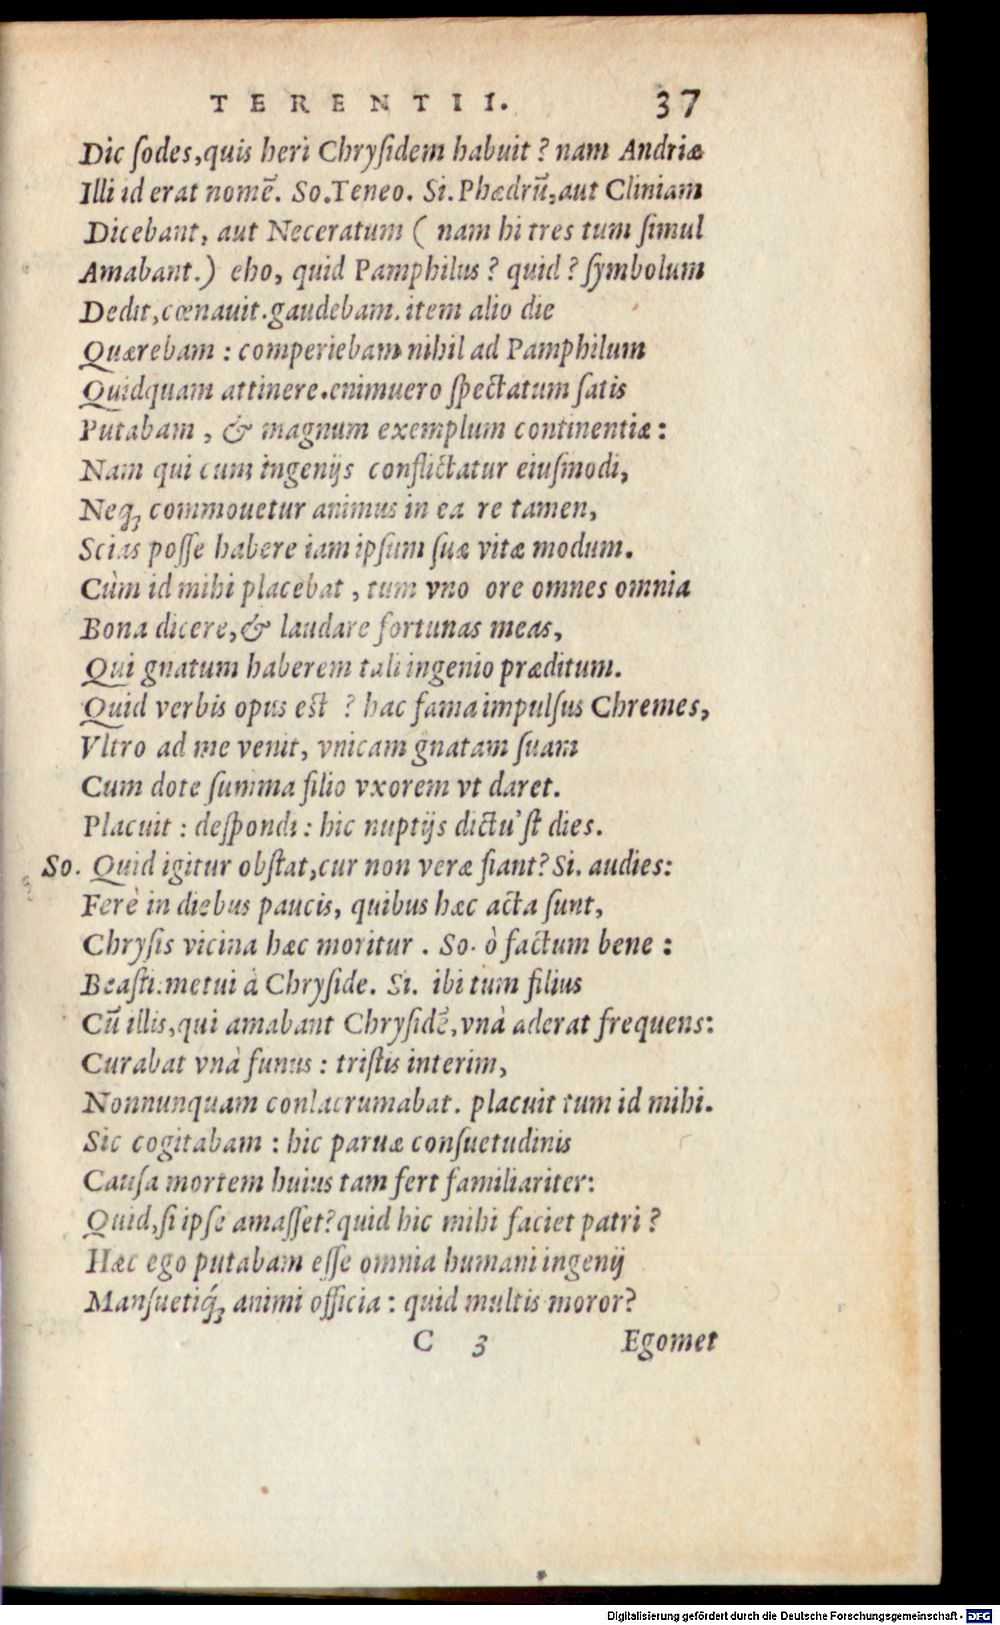 TERENTII. 37
Dic ſodes,quis heri Chryſidem habuit ? nam Andriæ
Illi id erat nomē. So.Teneo. Si.Phædrū,aut Cliniam
Dicebant, aut Neceratum ( nam hi tres tum ſimul
Amabant.) eho, quid Pamphilus ? quid ? ſymbolum
Dedit,cœnauit.gaudebam.item alio die
Quærebam : comperiebam nihil ad Pamphilum
Quidquam attinere.enimuero ſpectatum ſatis
Putabam , & magnum exemplum continentiæ :
Nam qui cum ingenijs conflictatur eiuſmodi,
Neq; commouetur animus in ea re tamen,
Scias poſſe habere iam ipſum ſuæ vitæ modum.
Cùm id mihi placebat , tum vno ore omnes omnia
Bona dicere,& laudare fortunas meas,
Qui gnatum haberem tali ingenio præditum.
Quid verbis opus est ? hac fama impulſus Chremes,
Vltro ad me venit, vnicam gnatam ſuam
Cum dote ſumma filio vxorem vt daret.
Placuit : deſpondi : hic nuptijs dictu'ſt dies.
So. Quid igitur obſtat,cur non veræ fiant? Si. audies:
Ferè in diebus paucis, quibus hæc acta ſunt,
Chryſis vicina hæc moritur . So. ò factum bene :
Beaſti:metui à Chryſide. Si. ibi tum filius
Cū illis,qui amabant Chryſidē,vnà aderat frequens:
Curabat vnà funus : triſtis interim,
Nonnunquam conlacrumabat. placuit tum id mihi.
Sic cogitabam : hic paruæ conſuetudinis
Cauſa mortem huius tam fert familiariter:
Quid,ſi ipſe amaſſet?quid hic mihi faciet patri ?
Hæc ego putabam eſſe omnia humani ingenij
Manſuetiq́; animi officia : quid multis moror?
C 3 Egomet
Digitalisierung gefördert durch die Deutsche Forschungsgemeinschaft - DFG